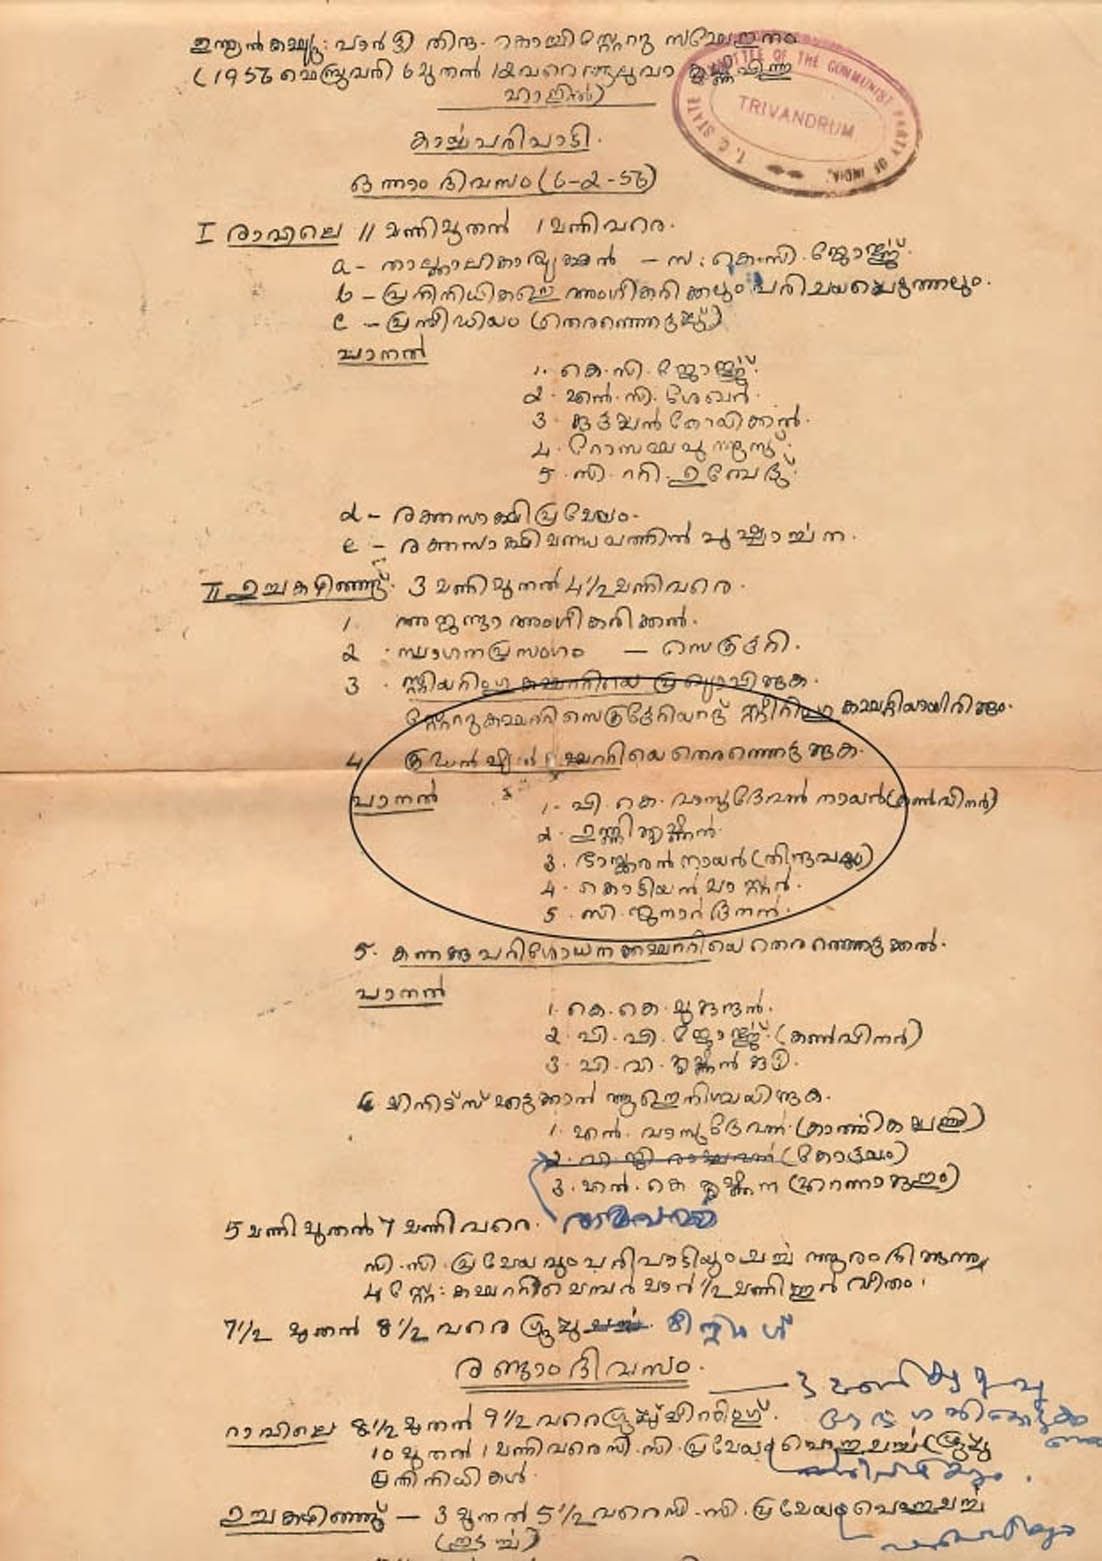 ഇന്ത്യൻ കമ്മ്യൂ: പാർട്ടി തിരു-കൊച്ചി സ്റ്റേറ്റു സമ്മേളനം
(1956 ഫെബ്രുവരി 6 മുതൽ 12 വരെ ആലുവാ
ഹാളിൽ)
T. C. STATE COMMITTEE OF THE COMMUNIST PARTY OF INDIA.
TRIVANDRUM
കാര്യപരിപാടി.
ഒന്നാം ദിവസം (6-2-56)
I രാവിലെ 11 മണിമുതൽ 1 മണിവരെ.
a - താല്ക്കാലികാദ്ധ്യക്ഷൻ - സ: കെ.സി. ജോർജ്ജ്.
b - പ്രതിനിധികളെ അംഗീകരിക്കലും പരിചയപ്പെടുത്തലും.
c - പ്രസീഡിയം (തെരഞ്ഞെടുപ്പ്)
പാനൽ
1. കെ.സി. ജോർജ്ജ്.
2. എൻ.സി. ശേഖർ.
3.
4. റോസമ്മ പുന്നൂസ്.
5. സി.
d - രക്തസാക്ഷി പ്രമേയം.
e - രക്തസാക്ഷി മണ്ഡപത്തിൽ പുഷ്പാർച്ചന.
II ഉച്ചകഴിഞ്ഞു്. 3 മണിമുതൽ 4½ മണിവരെ.
1. അജണ്ടാ അംഗീകരിക്കൽ.
2. സ്വാഗതപ്രസംഗം - സെക്രട്ടറി.
3. സ്റ്റിയറിംഗ് കമ്മററിയെ പ്രഖ്യാപിക്കുക.
സ്റ്റേററുകമ്മററി സെക്രട്ടേറിയററ് സ്റ്റീറിംഗ് കമ്മററിയായിരിക്കും.
4. ക്രഡൻഷ്യൽ കമ്മററിയെ തെരഞ്ഞെടുക്കുക.
പാനൽ
1. പി. കെ. വാസുദേവൻ നായർ (കൺവീനർ)
2. ഉണ്ണികൃഷ്ണൻ.
3. ഭാസ്കരൻ നായർ
4. കൊടിയൻ
5. സി. ജനാർദ്ദനൻ.
5. കണക്കുപരിശോധന കമ്മററിയെ തെരഞ്ഞെടുക്കൽ.
പാനൽ
1. കെ. കെ. മുകുന്ദൻ.
2. പി. പി. ജോർജ്ജ്. (കൺവീനർ)
3. പി. വി. കൃഷ്ണൻകുട്ടി.
6. മിനിട്സ് എടുക്കാൻ ആളെ നിശ്ചയിക്കുക.
1. എൻ. വാസുദേവൻ. (കാർത്തികപ്പള്ളി)
2. (കോട്ടയം)
3. എൻ. കെ. കൃഷ്ണൻ (എറണാകുളം)
5 മണിമുതൽ 7 മണിവരെ.
സി.സി. പ്രമേയവും പരിപാടിയും ചർച്ച ആരംഭിക്കുന്നു
4 സ്റ്റേ: കമ്മററി മെമ്പർമാർ ½ മണിക്കൂർ വീതം.
7½ മുതൽ 8½ വരെ ഗ്രൂപ്പു ചർച്ച. മീറ്റിംഗ്
രണ്ടാം ദിവസം.
രാവിലെ 8½ മുതൽ 9½ വരെ ഗ്രൂപ്പുമീററിംഗ്.
10 മുതൽ 1 മണിവരെ സി.സി. പ്രമേയം പൊതുചർച്ച ഗ്രൂപ്പു
പ്രതിനിധികൾ.
ഉച്ചകഴിഞ്ഞു് - 3 മുതൽ 5½ വരെ സി.സി. പ്രമേയം പൊതുചർച്ച
(തുടർച്ച)